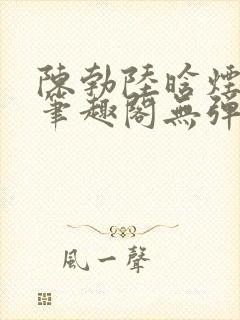 陳勃陸晗煙
筆趣閣無彈
風一聲